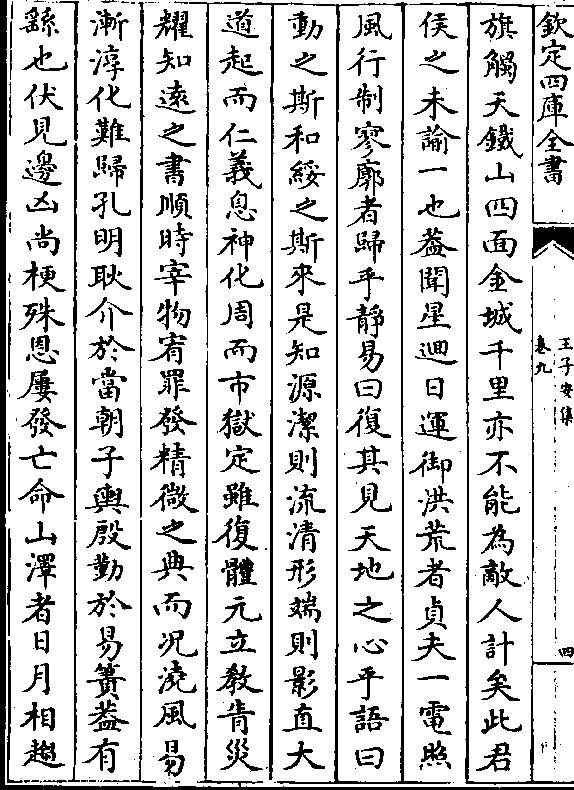 欽定四庫全書
王子安集
卷九
四
旗觸天鐵山四面金城千里亦不能為敵人計矣此君
侯之未諭一也葢聞星迴日運御洪荒者貞夫一電照
風行制寥廓者歸乎靜易曰復其見天地之心乎語曰
動之斯和綏之斯來是知源潔則流清形端則影直大
道起而仁義息神化周而市獄定雖復體元立教眚災
耀知遠之書順時宰物宥罪發精微之典而况澆風易
漸淳化難歸孔明耿介於當朝子輿殷勤於易簀葢有
繇也伏見邊凶尚梗殊恩屢發亡命山澤者日月相趨